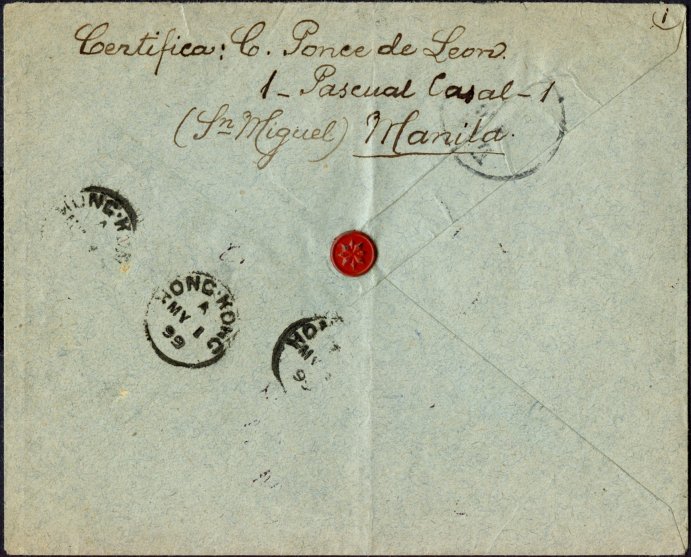 1
Certifica: C. Ponce de Leon.
1 - Pascual Casal - 1
(Sn Miguel) Manila.
HONG·KONG
A
HONG·KONG
A
MY 1
99
HON
MY
9